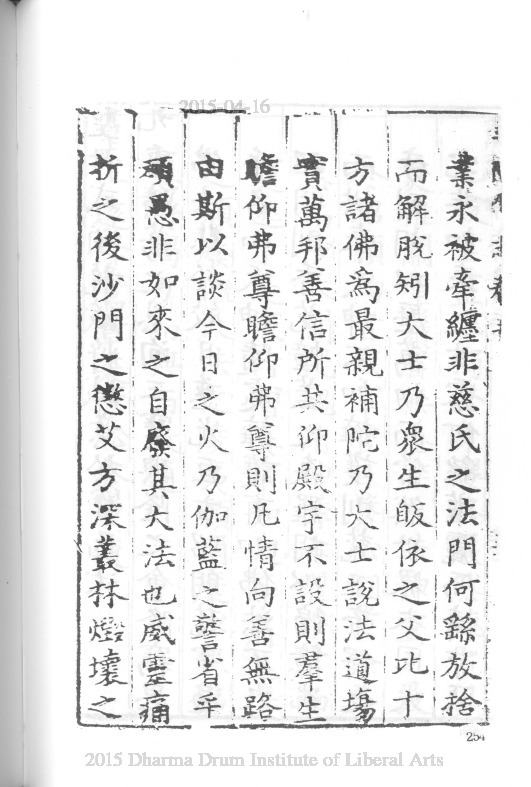 2015-04-16
業永被牽纏非慈氏之法門何繇放捨
而解脫矧大士乃衆生皈依之父比十
方諸佛爲最親補陀乃大士說法道場
實萬邦善信所共仰殿宇不設則羣生
瞻仰弗尊瞻仰弗尊則凡情向善無路
由斯以談今日之火乃伽藍之警省乎
頑愚非如來之自廢其大法也威靈痛
折之後沙門之懲艾方深叢林燬壞之
254
2015 Dharma Drum Institute of Liberal Arts